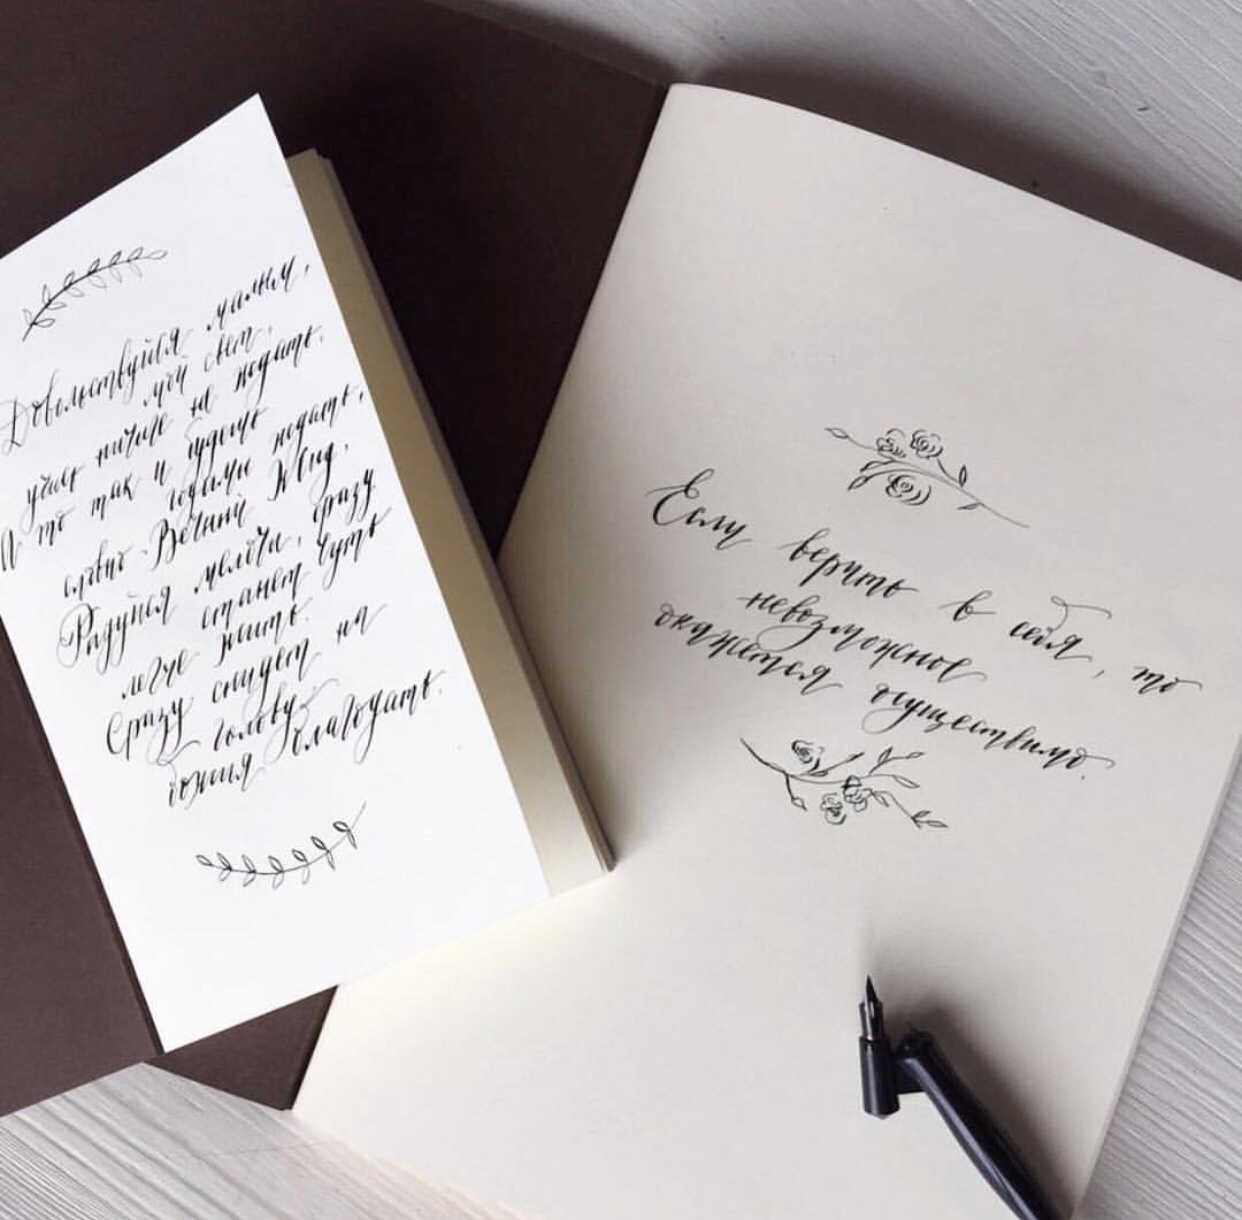 Довольствуйся малым,
мой свет,
учись ничего не ждать.
А то так и будешь
годами ждать,
словно Вечный Жид.
Радуйся мелочи, сразу
станет чуть
легче жить.
Сразу снидет на
голову
божия благодать.
Если верить в себя, то
невозможное
окажется осуществимо.